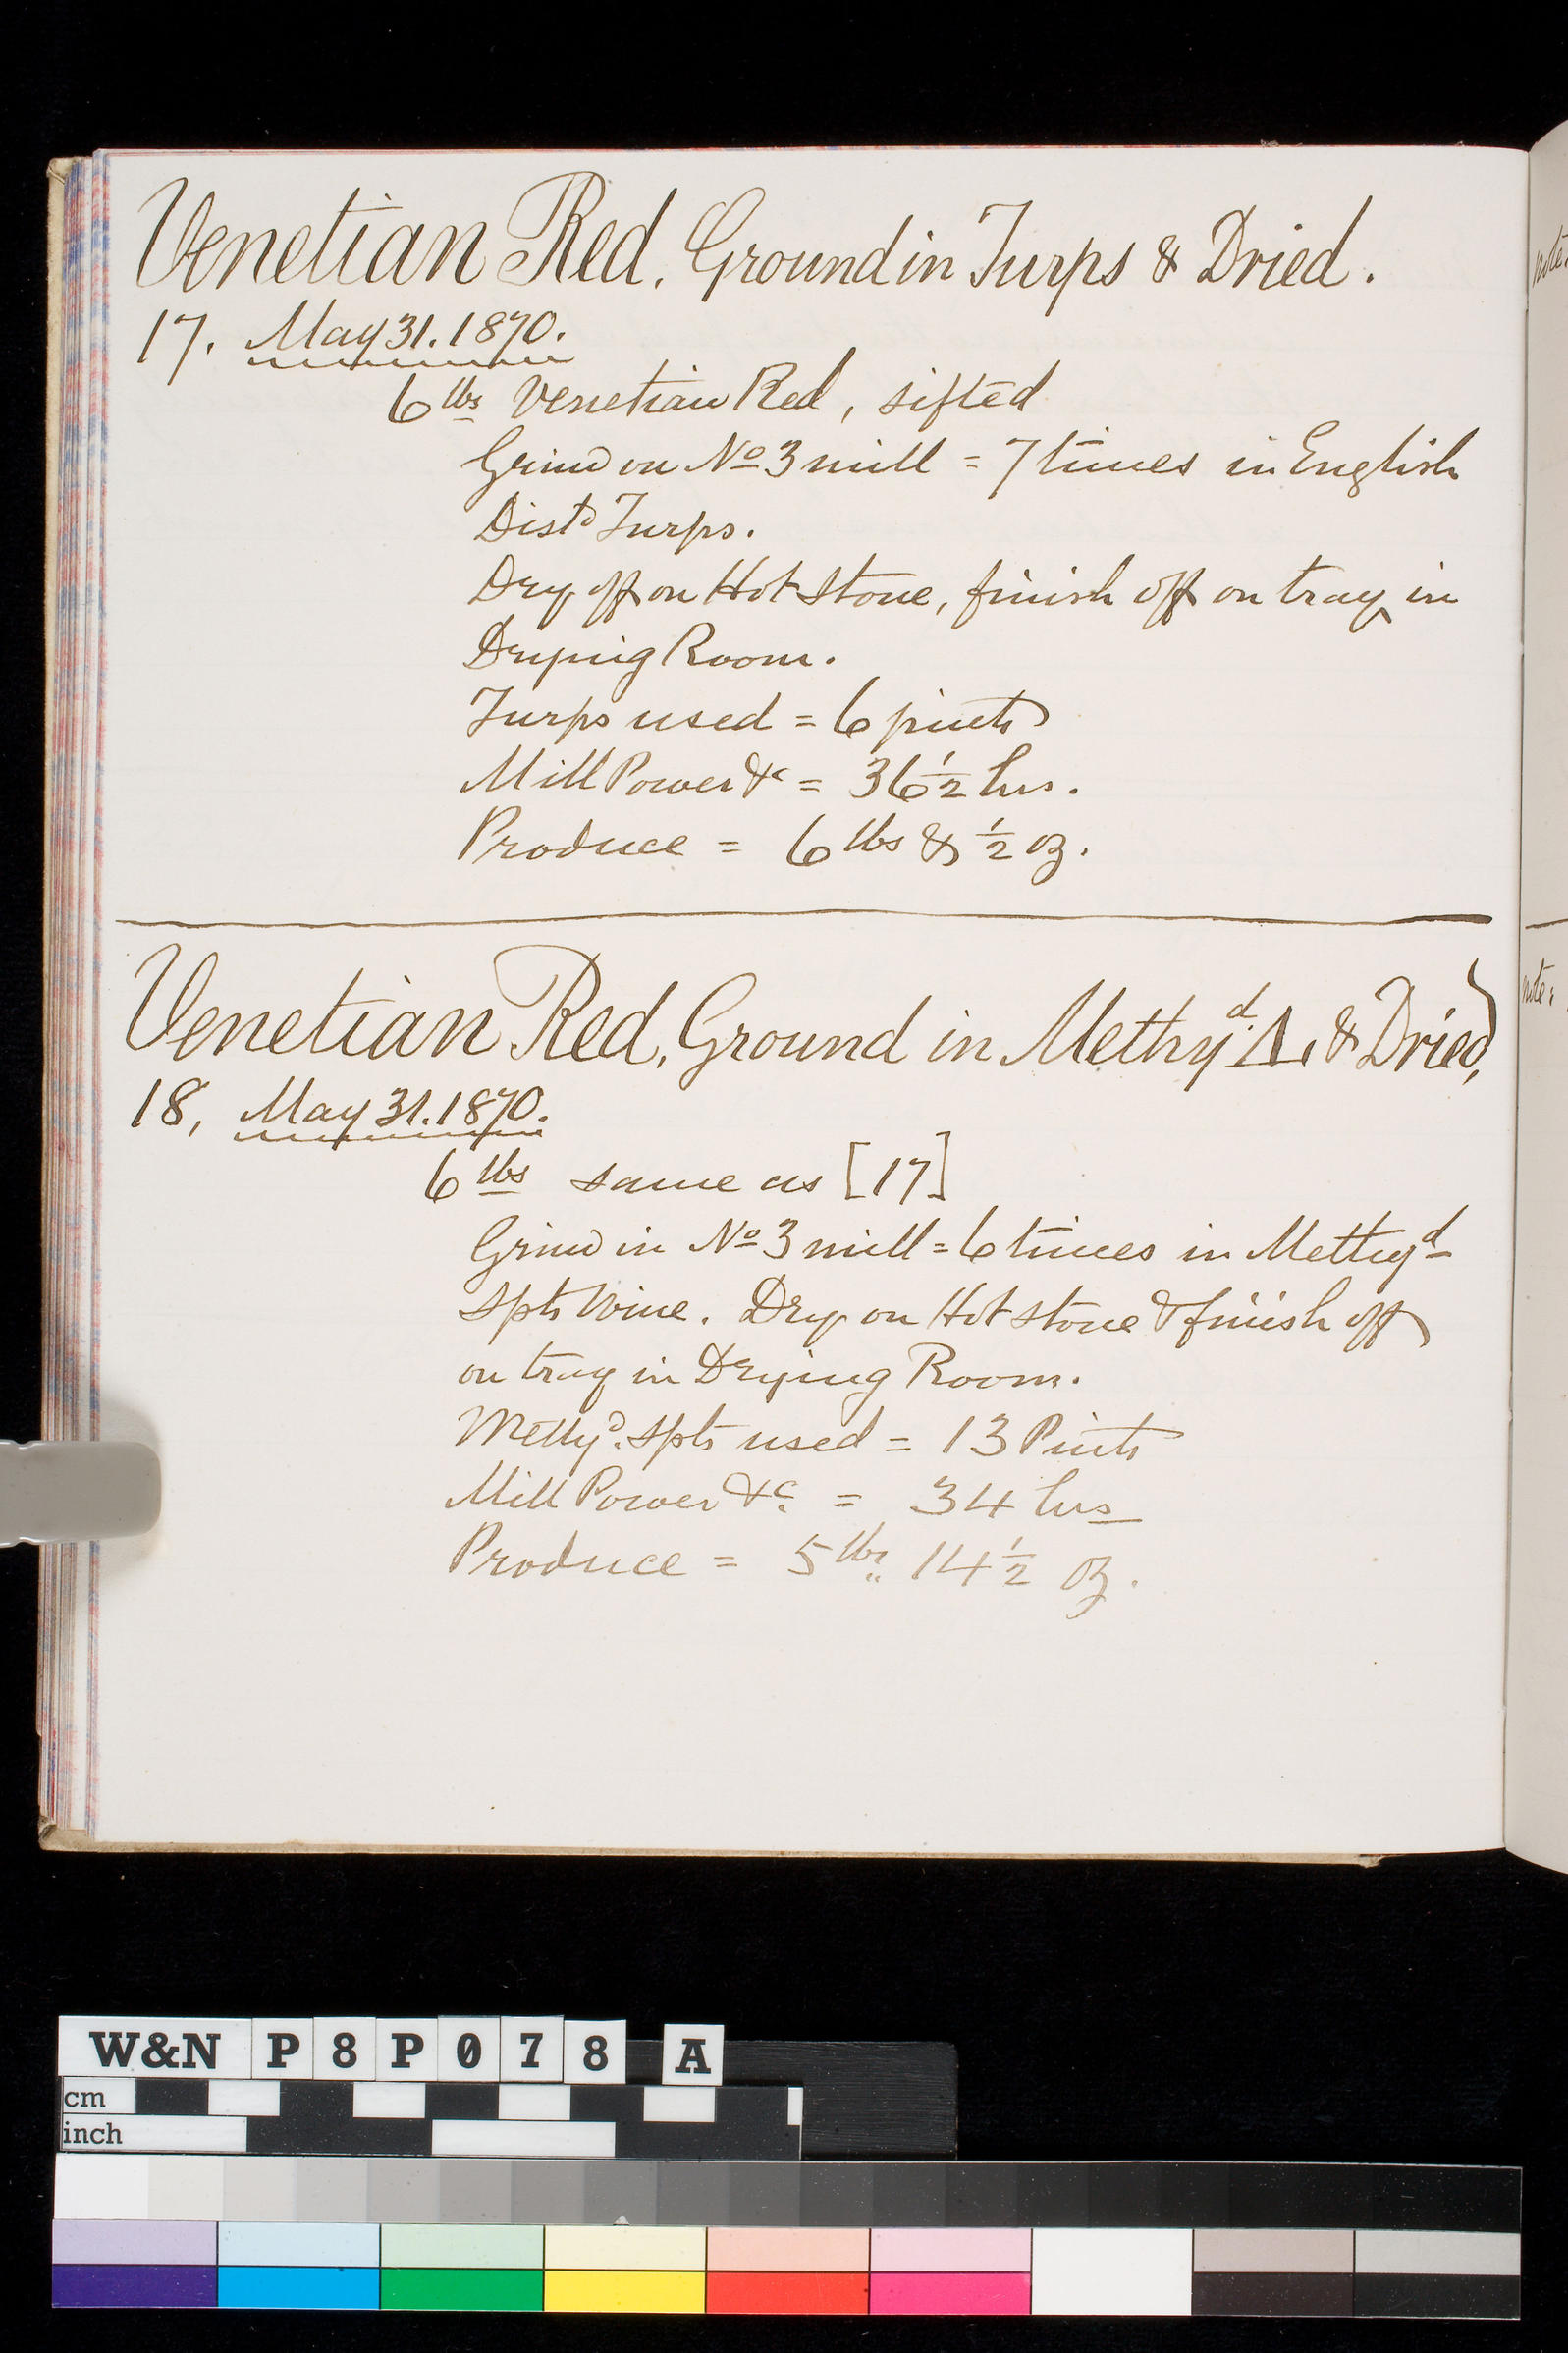 Venetian Red. Ground in Turps & Dried.
17. May 31. 1870.
6 lbs Venetian Red, sifted
Grind on No 3 mill = 7 times in English
Distd Turps.
Dry off on Hot Stone, finish off on tray in
Drying Room.
Turps used = 6 pints
Mill Power &c = 36 1/2 hrs.
Produce = 6 lbs & 1/2 oz.
Venetian Red, Ground in Methyd. & Dried,
18, May 31. 1870.
6 lbs same as [17]
Grind in No 3 mill = 6 times in Methyd
Spts Wine. Dry on Hot stone & finish off
on tray in Drying Room.
Methyd. Spts used = 13 Pints
Mill Power &c. = 34 hrs
Produce = 5 lbs. 14 1/2 oz.
note:
note:
W&N P8P078 A
cm
inch